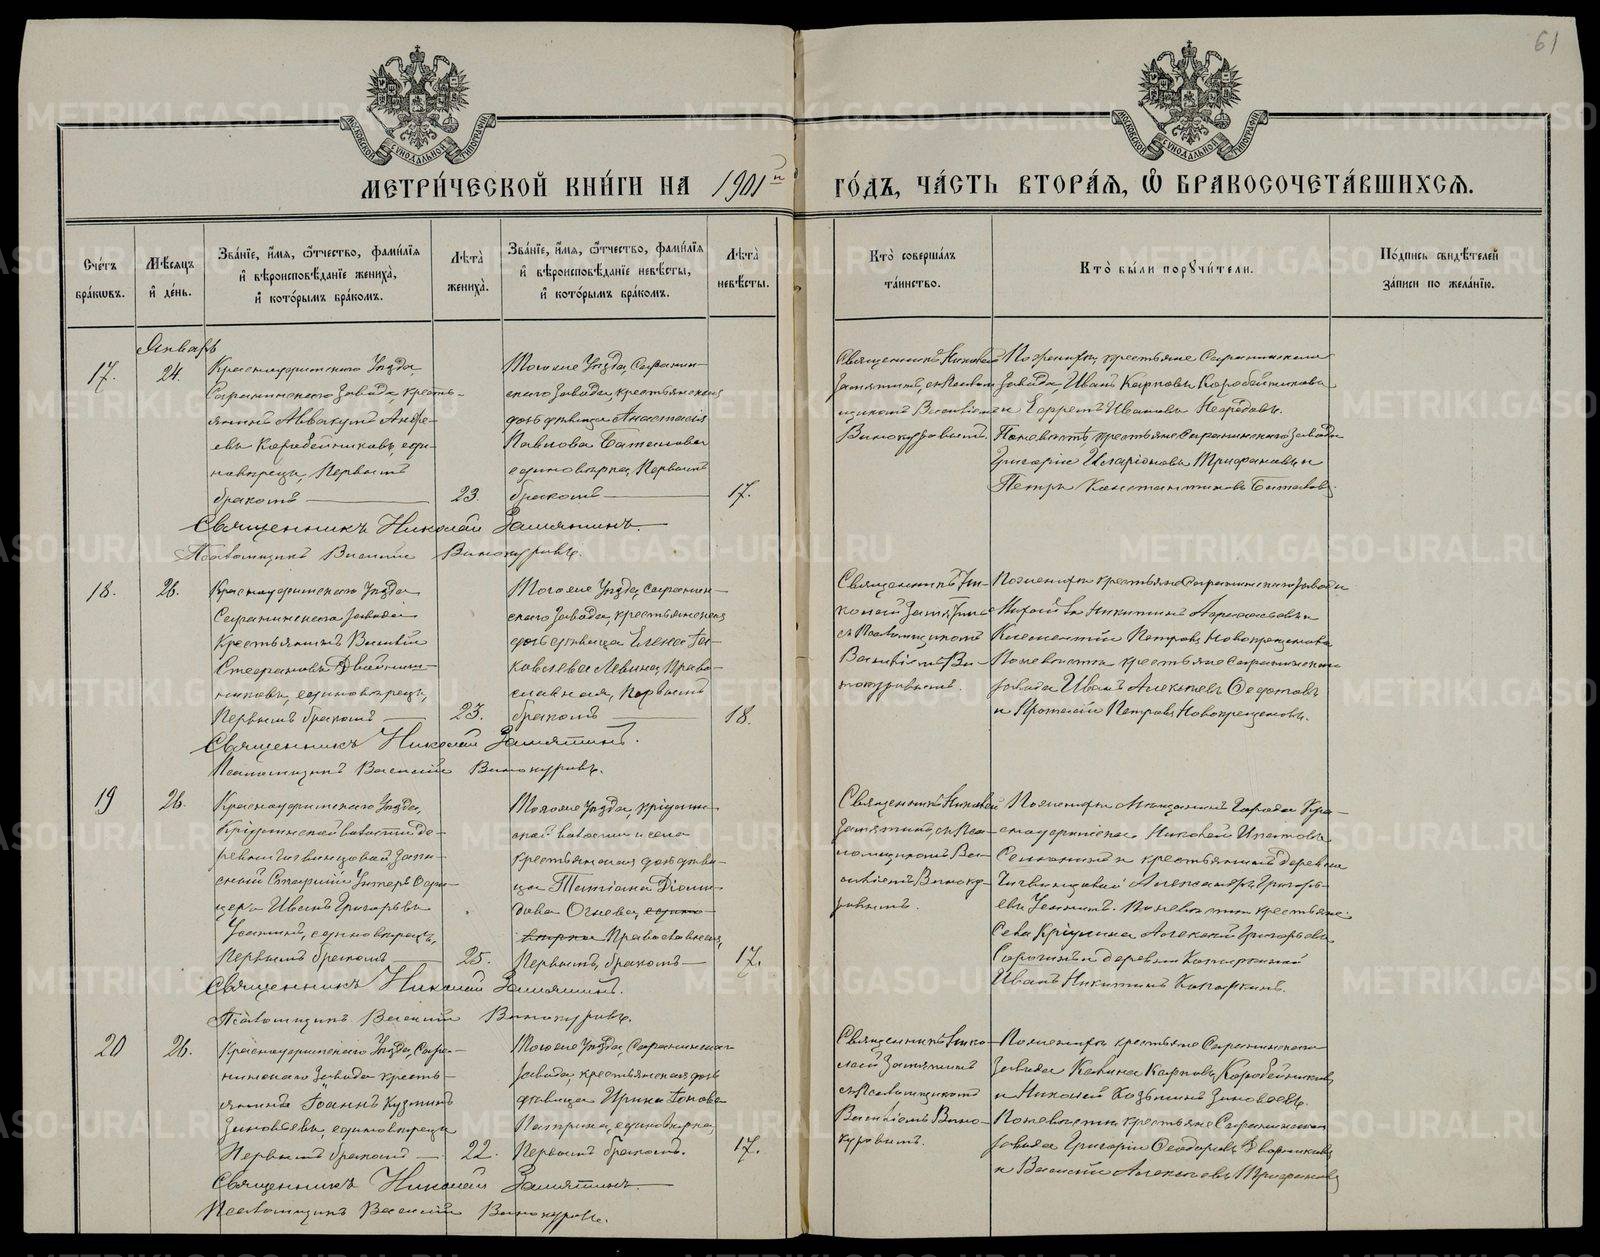 61
МОСКОВСКОЙ СУНОДАЛЬНОЙ ТИПОГРАФІИ
МОСКОВСКОЙ СУНОДАЛЬНОЙ ТИПОГРАФІИ
МЕТРИ́ЧЕСКОЙ КНИ́ГИ НА 1901й ГО́ДЪ, ЧА́СТЬ ВТОРА́Я, Ѡ БРАКОСОЧЕТА́ВШИХСЯ.
Сче́тъ бра́кѡвъ.
Мѣ́сяцъ и҆ де́нь.
Зва́нїе, и҆́мя, ѻ҆́тчество, фами́лїя
и҆ вѣроисповѣ́данїе жениха̀,
и҆ кото́рымъ бра́комъ.
Лѣ́та жениха̀.
Зва́нїе, и҆́мя, ѻ҆́тчество, фами́лїя
и҆ вѣроисповѣ́данїе невѣ́сты,
и҆ кото́рымъ бра́комъ.
Лѣ́та невѣ́сты.
Кто̀ соверша́лъ та́инство.
Кто̀ бы́ли поручи́тели.
По́дпись свидѣ́телей за́писи по жела́нїю.
Январь
17.
24.
Красноуфимскаго Уѣзда
Саранинскаго Завода кресть-
янинъ Аввакумъ Андре-
евъ Коробейниковъ, еди-
новѣрецъ, Первымъ
бракомъ
23.
Тогоже Уѣзда, Саранин-
скаго Завода, крестьянская
дочь дѣвица Анастасія
Павлова
единовѣрка, Первымъ
бракомъ
17.
Священникъ Николай
Замятинъ, съ Псалом-
щикомъ Василіемъ
Винокуровымъ.
По женихѣ, крестьяне Саранинскаго
Завода, Иванъ Карповъ Коробейниковъ
и Иванов
По невѣстѣ, крестьяне Саранинскаго Завода
Григорій Иларіоновъ Трифановъ и
Петръ Константиновъ
Священникъ Николай Замятинъ.
Псаломщикъ Василій Винокуровъ.
18.
26.
Красноуфимскаго Уѣзда
Саранинскаго Завода
Крестьянинъ Василій
Стефановъ Двойни-
никовъ, единовѣрецъ,
Первымъ бракомъ
23.
Тогоже Уѣзда, Саранин-
скаго Завода, крестьянская
дочь дѣвица Елена Іа-
ковлева Левина, Право-
славная, Первымъ
бракомъ
18.
Священникъ Ни-
колай Замятинъ
съ Псаломщикомъ
Василіемъ Ви-
нокуровымъ.
По женихѣ крестьяне Саранинскаго Завода
Никитинъ
Климентій Петровъ Новокрещеновъ
По невѣстѣ крестьяне Саранинскаго
завода Иванъ Алексѣевъ Федотовъ
и Петровъ Новокрещеновъ.
Священникъ Николай Замятинъ.
Псаломщикъ Василій Винокуровъ.
19
26.
Красноуфимскаго Уѣзда,
Кріулинской волости де-
ревни Чигвинцовой Запа-
сный Старшій Унтеръ Офи-
церъ Иванъ Григорьевъ
единовѣрецъ,
Первымъ бракомъ
25.
Тогоже Уѣзда, Кріулин-
ской волости и села
крестьянская дочь дѣви-
ца Татіана Діоми-
дова Огнева, едино-
вѣрка Православная,
Первымъ бракомъ
17.
Священникъ Николай
Замятинъ, съ Пса-
ломщикомъ Ва-
силіемъ Виноку-
ровымъ.
По женихѣ Мѣщанинъ города Кра-
сноуфимска Николай
и крестьянинъ деревни
Чигвинцовой Александръ Григорь-
евъ По невѣстѣ крестьяне
Села Кріулина Алексѣй Григорьевъ
и деревни
Иванъ Никитинъ
Священникъ Николай Замятинъ.
Псаломщикъ Василій Винокуровъ.
20
26.
Красноуфимскаго Уѣзда, Сара-
нинскаго Завода кресть-
янинъ Іоаннъ Кузминъ
Зиновьевъ, единовѣрецъ
Первымъ бракомъ
22.
Тогоже Уѣзда, Саранинскаго
Завода, крестьянская дочь
дѣвица Ирина Іонова
единовѣрка,
Первымъ бракомъ.
17.
Священникъ Нико-
лай Замятинъ
съ Псаломщикомъ
Василіемъ Вино-
куровымъ.
По женихѣ крестьяне Саранинскаго
Завода Карповъ Коробейниковъ
и Николай Козьминъ Зиновьевъ.
По невѣстѣ крестьяне Саранинскаго
завода Григорій Феодоровъ Дворниковъ
и Василій Алексѣевъ Трифановъ
Священникъ Николай Замятинъ.
Псаломщикъ Василій Винокуровъ.
METRIKI.GASO-URAL.RU